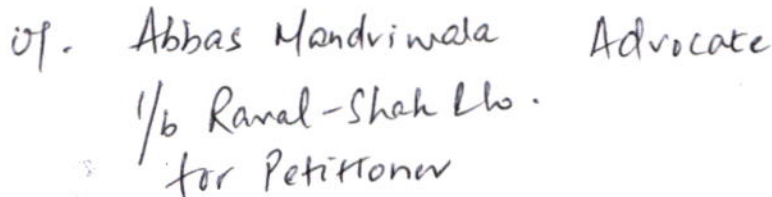 Abbas Mandviwala Advocate
i/b Raval-Shah & Co.
for Petitioner